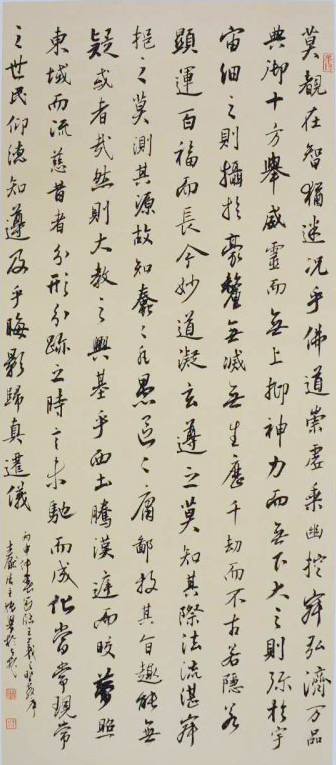 莫覩在智猶迷況乎佛道崇虛乘幽控寂弘濟万品
典御十方舉威靈而無上抑神力而無下大之則弥於宇
宙細之則攝於豪釐無滅無生歷千劫而不古若隱若
顯運百福而長今妙道凝玄遵之莫知其際法流湛寂
挹之莫測其源故知蠢々凡愚區々庸鄙投其旨趣能無
疑或者哉然則大教之興基乎西土騰漢庭而皎夢照
東域而流慈昔者分形分跡之時言未馳而成化當常現常
之世民仰德知遵及乎晦影歸真遷儀
丙申仲春臨王羲之聖教序